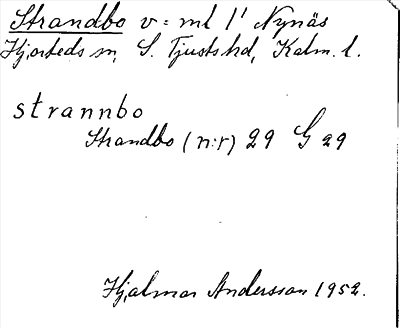 Strandbo v = ml l' Nynäs
Hjorteds sn, S. Tjusts hd, Kalm. l.
strannbo
Strandbo (n:r) 29 G 29
Hjalmar Andersson 1952.